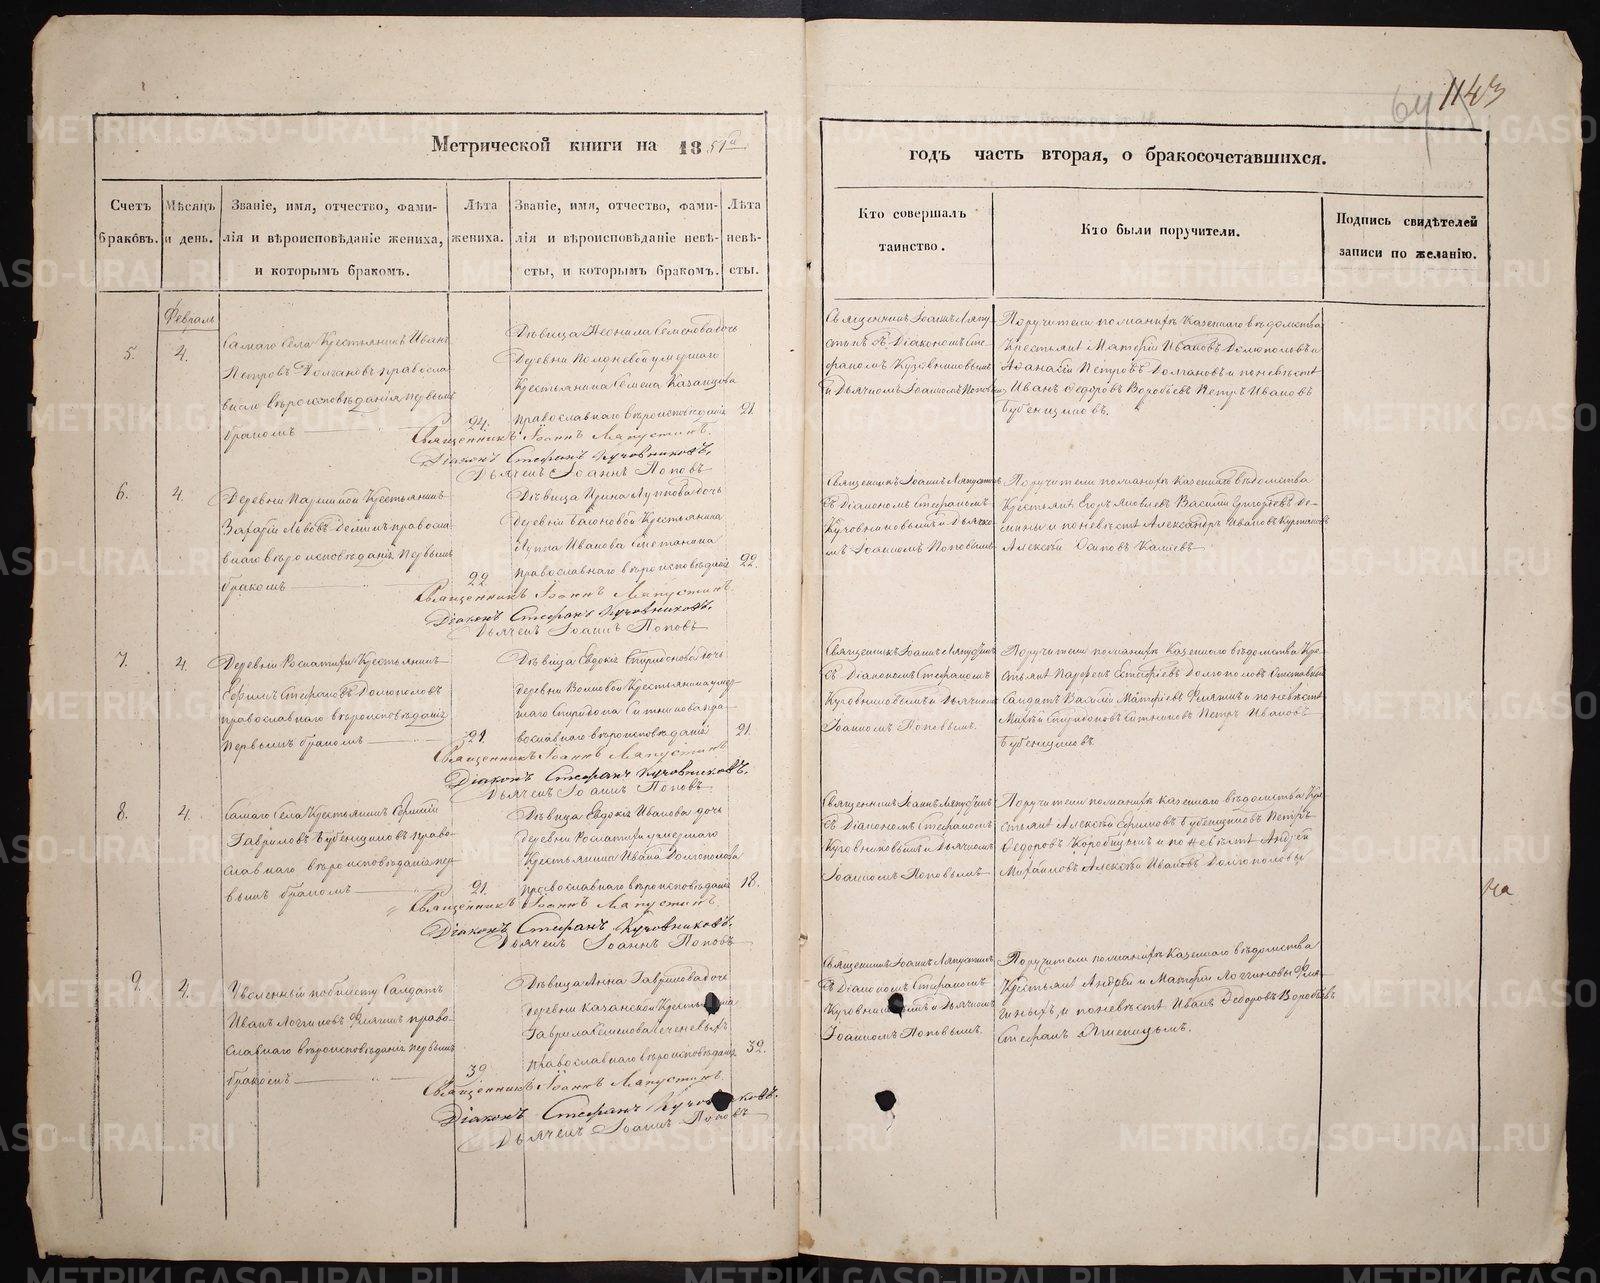 64 1143
Метрической книги на 1851й
годъ часть вторая, о бракосочетавшихся.
Счетъ браковъ.
Мѣсяцъ и день.
Званіе, имя, отчество, фами-
лія и вѣроисповѣданіе жениха,
и которымъ бракомъ.
Лѣта
жениха.
Званіе, имя, отчество, фами-
лія и вѣроисповѣданіе невѣ-
сты, и которымъ бракомъ.
Лѣта
невѣ-
сты.
Кто совершалъ
таинство.
Кто были поручители.
Подпись свидѣтелей
записи по желанію.
Февраль
5.
4.
Самаго Села Крестьянинъ Иванъ
Петровъ Долгановъ правосла
внаго вѣроисповѣданія первымъ
бракомъ
24.
Дѣвица Неонила Семенова дочь
Деревни Полдневой умершаго
Крестьянина Семена Казанцова
православнаго вѣроисповѣданія
21.
Священникъ Іоаннъ Ляпустинъ.
Діаконъ Стефанъ Кузовниковъ.
Дьячекъ Іоаннъ Поповъ
Священникъ Іоаннъ Ляпу-
стинъ съ Діакономъ Сте-
фаномъ Кузовниковымъ
и Дьячкомъ Іоанномъ Поповымъ
Поручители по женихѣ казеннаго вѣдомства
Крестьяне Матфій Ивановъ Долгополовъ и
Афанасій Петровъ Долгановъ и по невѣстѣ
Иванъ Федоровъ Воробьевъ Петръ Ивановъ
Бубенщиковъ.
6.
4.
Деревни Крестьянинъ
Захарій Львовъ Деминъ правосла
внаго вѣроисповѣданія первымъ
бракомъ
22
Дѣвица Ирина Луппова дочь
деревни Крестьянина
Луппа Иванова Сметанина
православнаго вѣроисповѣданія
22.
Священникъ Іоаннъ Ляпустинъ.
Діаконъ Стефанъ Кузовниковъ.
Дьячекъ Іоаннъ Поповъ
Священникъ Іоаннъ Ляпустинъ
съ Діакономъ Стефаномъ
Кузовниковымъ и Дьячко-
мъ Іоанномъ Поповымъ
Поручители по женихѣ казеннаго вѣдомства
Крестьяне Егоръ Яковлевъ Василій Григорьевъ Де-
мины и по невѣстѣ Александръ Ивановъ
Алексѣй Осиповъ
7.
4.
Деревни Крестьянинъ
Ефимъ Стефановъ Долгополовъ
православнаго вѣроисповѣданія
первымъ бракомъ
21.
Дѣвица Евдокія Спиридонова дочь
деревни Волковой Крестьянина умер-
шаго Спиридона Ситникова пра-
вославнаго вѣроисповѣданія
21.
Священникъ Іоаннъ Ляпустинъ
Діаконъ Стефанъ Кузовниковъ.
Дьячекъ Іоаннъ Поповъ
Священникъ Іоаннъ Ляпустинъ
съ Діакономъ Стефаномъ
Кузовниковымъ и Дьячкомъ
Іоанномъ Поповымъ.
Поручители по женихѣ казеннаго вѣдомства Кре-
стьяне Парфенъ Евстафіевъ Долгополовъ Отставный
Солдатъ Василій Матфіевъ и по невѣстѣ
Спиридоновъ Ситниковъ Петръ Ивановъ
Бубенщиковъ.
8.
4.
Самаго Села Крестьянинъ
Гавриловъ Бубенщиковъ право-
славнаго вѣроисповѣданія пер-
вымъ бракомъ
21.
Дѣвица Евдокія Иванова дочь
деревни умершаго
Крестьянина Ивана Долгополова
православнаго вѣроисповѣданія
18.
Священникъ Іоаннъ Ляпустинъ.
Діаконъ Стефанъ Кузовниковъ.
Дьячекъ Іоаннъ Поповъ
Священникъ Іоаннъ Ляпустинъ
съ Діакономъ Стефаномъ
Кузовниковымъ и Дьячкомъ
Іоанномъ Поповымъ
Поручители по женихѣ казеннаго вѣдомства Кре-
стьяне Алексѣй Ефимовъ Бубенщиковъ Петръ
Федоровъ и по невѣстѣ Андрей
Михайловъ Алексѣй Ивановъ Долгополовы
9.
4.
Уволенный по билету Солдатъ
Иванъ Логгиновъ право-
славнаго вѣроисповѣданія первымъ
бракомъ
39
Дѣвица Анна Гаврилова дочь
деревни Казанской Крестьянина
Гаврила Печеневыхъ
православнаго вѣроисповѣданія
32.
Священникъ Іоаннъ Ляпустинъ.
Діаконъ Стефанъ Кузовниковъ.
Дьячекъ Іоаннъ Поповъ
Священникъ Іоаннъ Ляпустинъ
съ Діакономъ Стефаномъ
Кузовниковымъ и Дьячкомъ
Іоанномъ Поповымъ.
Поручители по женихѣ казеннаго вѣдомства
Крестьяне Андрей и Матфій Логгиновы
и по невѣстѣ Иванъ Федоровъ Воробьевъ
Стефанъ Пшеницынъ.
На
METRIKI.GASO-URAL.RU